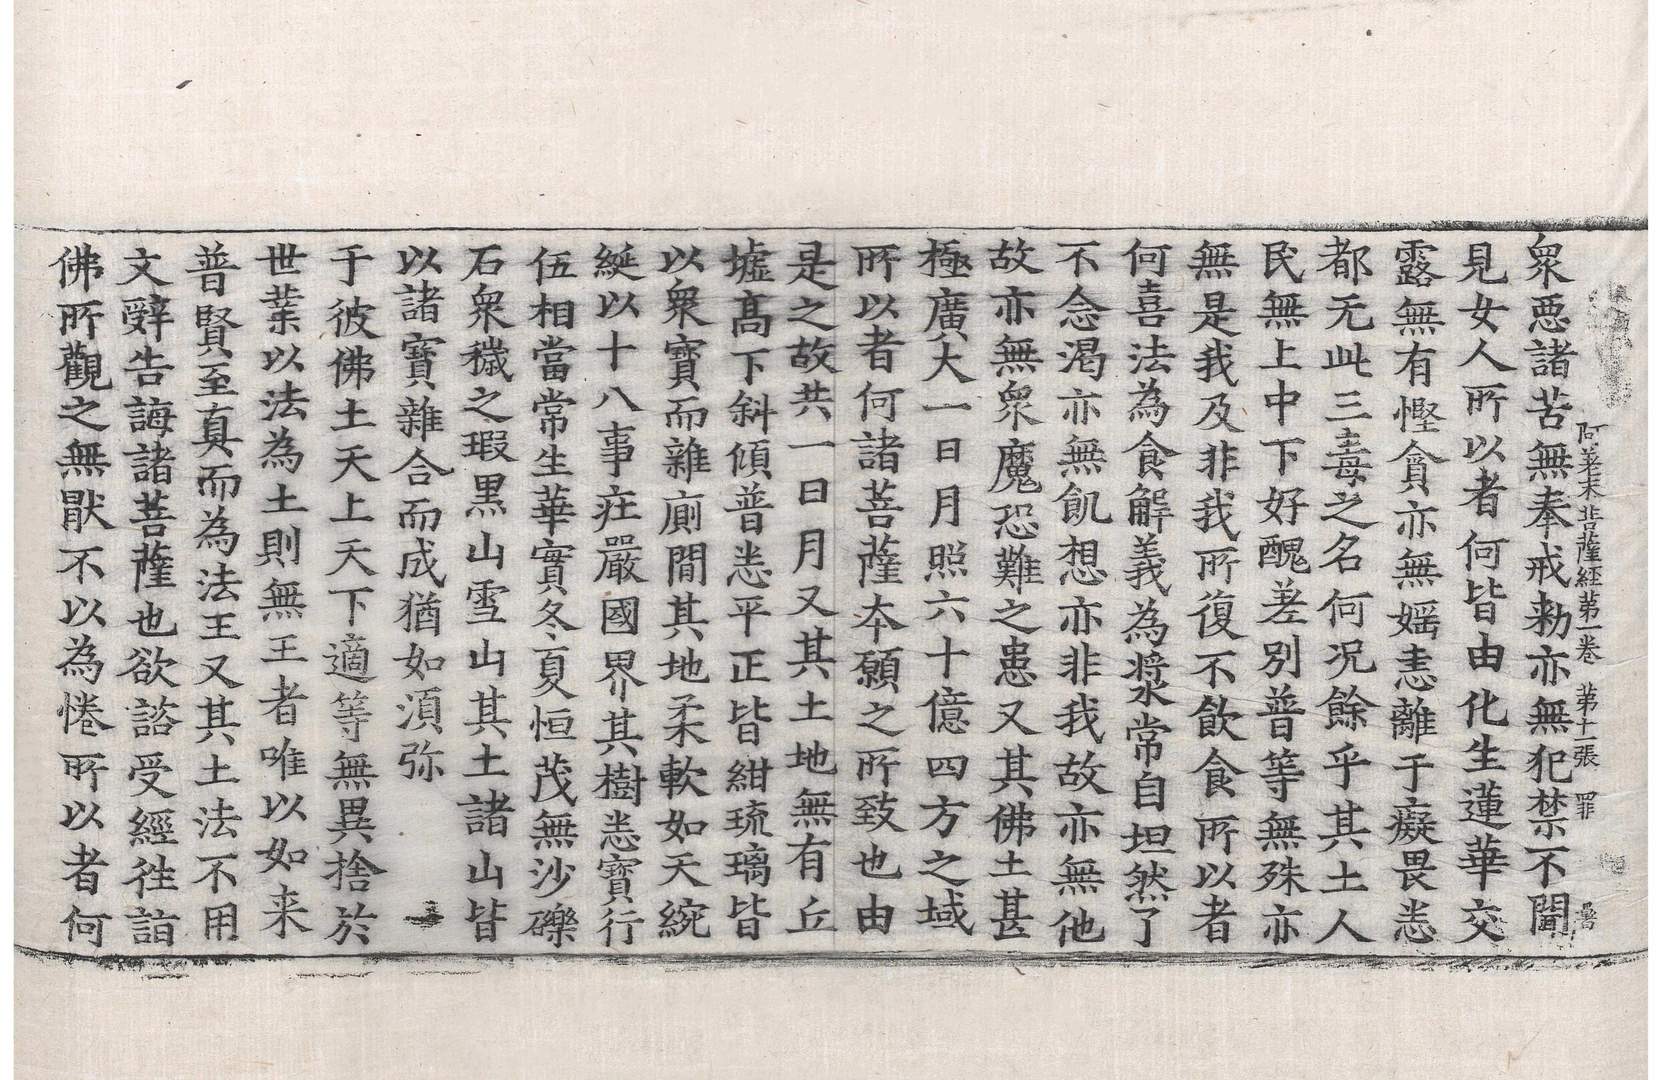 阿差末菩薩經第一卷　第十一張　罪
衆惡諸苦無奉戒勑亦無犯禁不聞
見女人所以者何皆由化生蓮華交
露無有慳貪亦無婬恚離于癡畏恚
都无此三毒之名何況餘乎其土人
民無上中下好醜差別普等無殊亦
無是我及非我所復不飲食所以者
何喜法為食解義為漿常自坦然了
不念渴亦無飢想亦非我故亦無他
故亦無衆魔恐難之患又其佛土甚
極廣大一日月照六十億四方之域
所以者何諸菩薩本願之所致也由
是之故共一日月又其土地無有丘
墟高下斜傾普悉平正皆紺琉璃皆
以衆寶而雜廁間其地柔軟如天綩
綖以十八事莊嚴國界其樹悉寶行
伍相當常生華實冬夏恒茂無沙礫
石衆穢之瑕黑山雪山其土諸山皆
以諸寶雜合而成猶如湏弥
于彼佛土天上天下適等無異捨於
世業以法為土則無王者唯以如来
普賢至真而為法王又其土法不用
文辭告誨諸菩薩也欲諮受經徃詣
佛所觀之無猒不以為惓所以者何